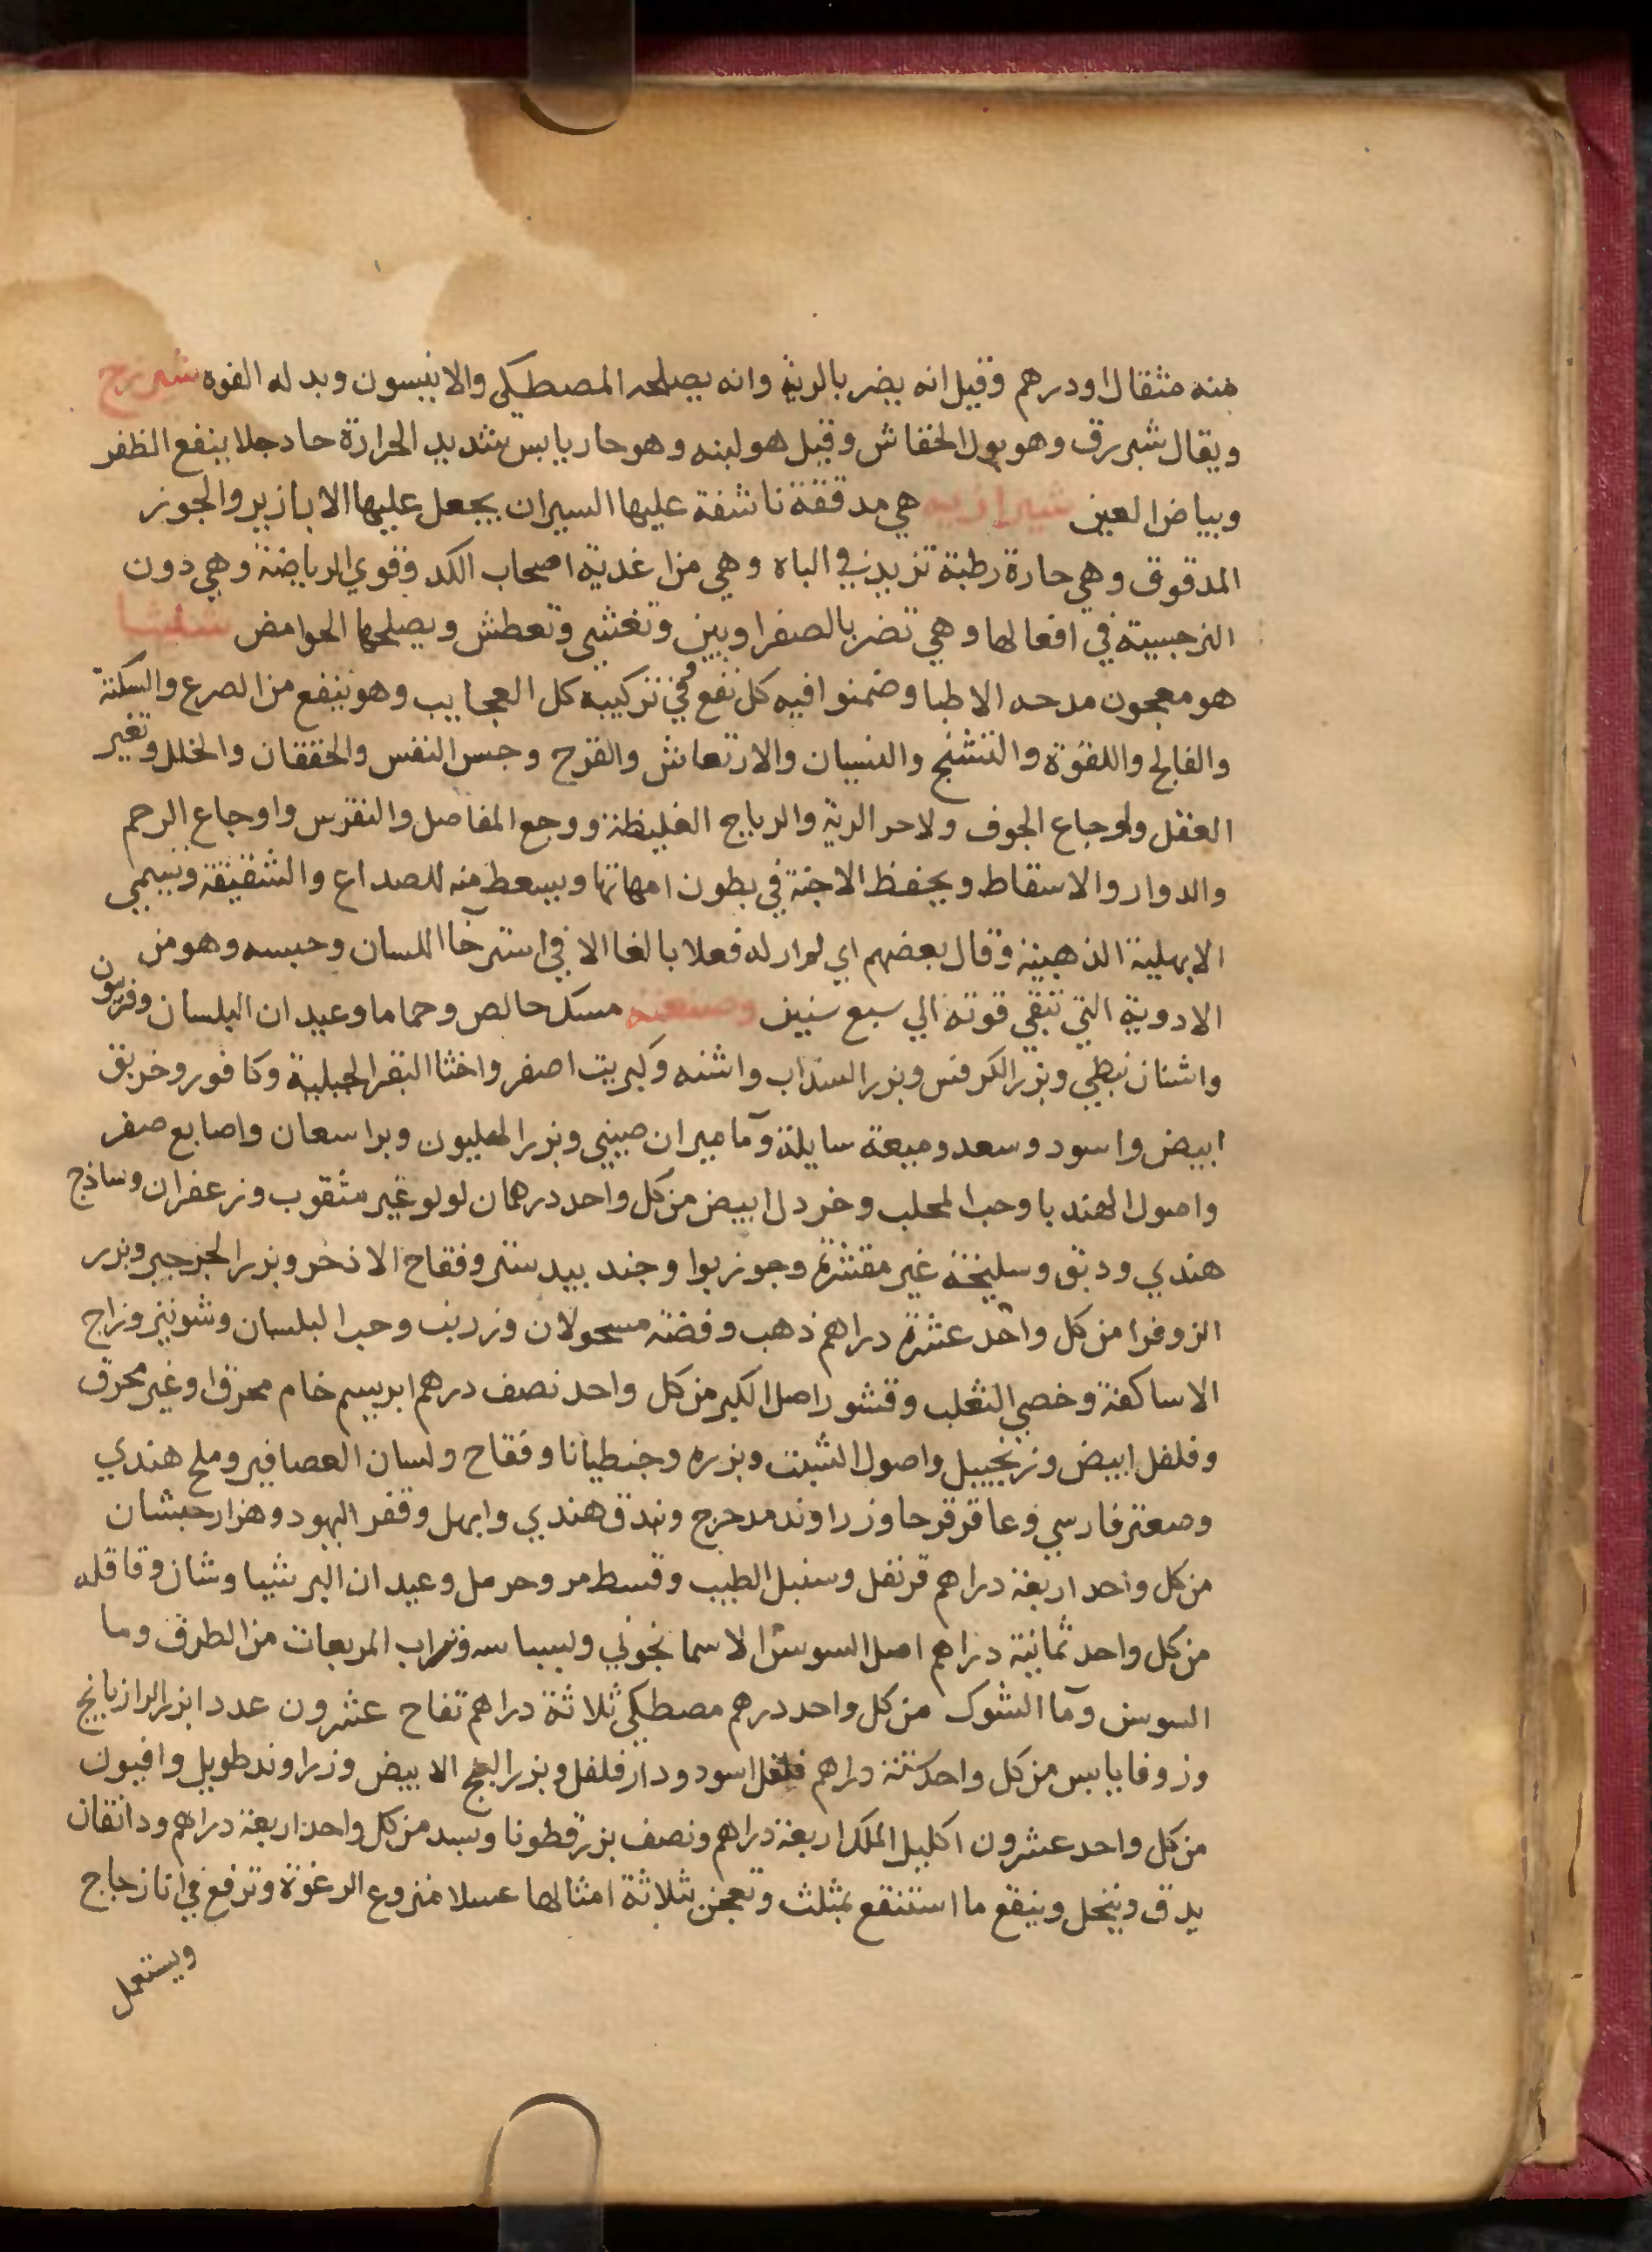 منه مثقال او درهم وقيل انه يضر بالرية وانه يصلحه المصطكي والانيسون وبدله الفوه شيرزج
ويقال شبرزق وهو بول الخفاش وقيل هو لبنه وهو حار يابس شديد الحرارة حاد جلا ينفع الظفر
وبياض العين شيرازيه هي مدققة ناشفة عليها السيران يجعل عليها الابازير والجوز
المدقوق وهي حارة رطبة تزيد في الباه وهي من اغدية اصحاب الكد وقوي الرياضة وهي دون
النرجسية في افعالها وهي تضر بالصفراويين وتغشي وتعطش ويصلحها الحوامض شليثا
هو معجون مدحه الاطبا وضمنوا فيه كل نفع وفي تركيبه كل العجايب وهو ينفع من الصرع والسكتة
والفالج واللقوة والتشنج والنسيان والارتعاش والقرح وحبس النفس والخفقان والخلل وتغير
العقل ولوجاع الجوف ولاحر الرية والرياح الغليظة ووجع المفاصل والنقرس واوجاع الرحم
والدوار والاسقاط ويحفظ الاجنة في بطون امهاتها ويسعط منه للصداع والشقيقة ويسمي
الابهلية الذهبية وقال بعضهم اي لم ار له فعلا بالغا الا في استرخا اللسان وحبسه وهو من
الادوية التي تبقي قوته الي سبع سنين وصنعته مسك خالص وحماما وعيدان البلسان وفربيون
واشنان نبطي وبزر الكرفس وبزر السذاب واشنه وكبريت اصفر واخثا البقر الجبلية وكافور وخربق
ابيض واسود وسعد وميعة سايلة وماميران صيني وبزر الهليون وبراسعان واصابع صفر
واصول الهندبا وحب المحلب وخردل ابيض من كل واحد درهمان لولو غير مثقوب وزعفران وساذج
هندي ودبق وسليخة غير مقشرة وجوز بوا وجند بيدستر وفقاح الاذخر وبزر الجرجير وبزر
الزوفرا من كل واحد عشرة دراهم ذهب وفضة مسحولان وزرنب وحب البلسان وشونيز وزاج
الاساكفة وخصي الثعلب وقشور اصل الكبر من كل واحد نصف درهم ابريسم خام محرق او غير محرق
وفلفل ابيض وزنجبيل واصول الشبت وبزره وجنطيانا وفقاح ولسان العصافير وملح هندي
وصعتر فارسي وعاقرقرحا وزراوند مدحرج وبندق هندي وابهل وقفر اليهود وهزارجشان
من كل واحد اربعة دراهم قرنفل وسنبل الطيب وقسط مر وحرمل وعيدان البرشياوشان وقاقله
من كل واحد ثمانية دراهم اصل السوسن الاسمانجوني وبسباسه وتراب المربعات من الطرق وما
السوس وما الشوك من كل واحد درهم مصطكي ثلاثة دراهم تفاح عشرون عددا بزر الرازيانج
وزوفا يابس من كل واحد ستة دراهم فلفل اسود ودار فلفل وبزر البنج الابيض وزراوند طويل وافيون
من كل واحد عشرون اكليل الملك اربعة دراهم ونصف بزرقطونا وسبد من كل واحد اربعة دراهم ودانقان
يدق وينخل وينقع ما استنقع بمثلث وتعجن بثلاثة امثالها عسلا منزوع الرغوة وترفع في انا زجاج
ويستعمل